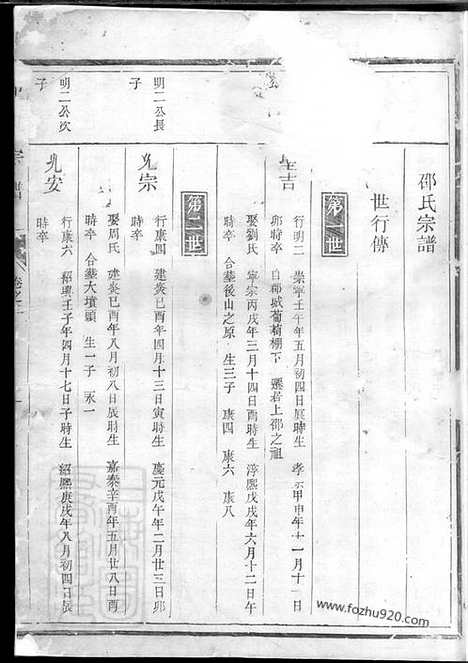 邵氏宗譜
世行傳
第一世
吉
行明二 崇寧壬午年五月初四日辰時生 孝 甲申年十一月十一日
卯時卒 自鄴城葡萄棚下 遷若上邵之祖
娶劉氏 寧宗丙戌年三月十四日酉時生 淳熙戊戌年六月十二日午
時卒 合塟後山之原 生三子 康四 康六 康八
第二世
明二公長
子
允宗
行康四 建炎己酉年四月十三日寅時生 慶元戊午年二月廿三日卯
時卒
娶周氏 建炎己酉年八月初八日辰時生 嘉泰辛酉年五月廿八日酉
時卒 合塟大墳頭 生一子 永一
明二公次
子
允安
行康六 紹興壬子年四月十七日子時生 紹熙庚戌年八月初四日辰
時卒
宗譜
卷之二
www.fozhu920.com